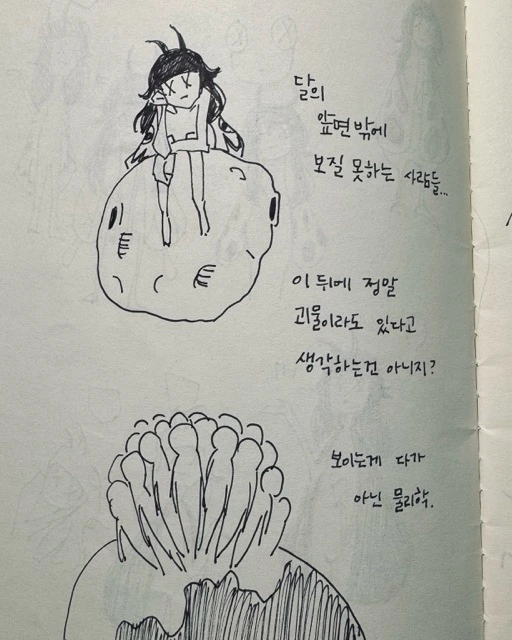 달의
앞면 밖에
보질 못하는 사람들...
이 뒤에 정말
괴물이라도 있다고
생각하는건 아니지?
보이는게 다가
아닌 물리학.